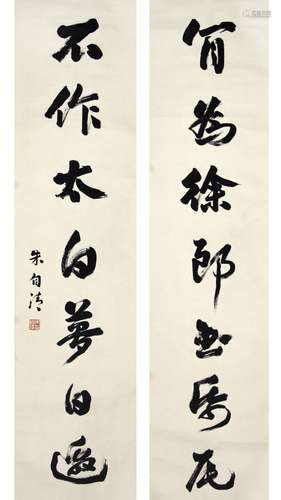 肎為徐郎書紙尾
不作太白夢日邊
朱自清